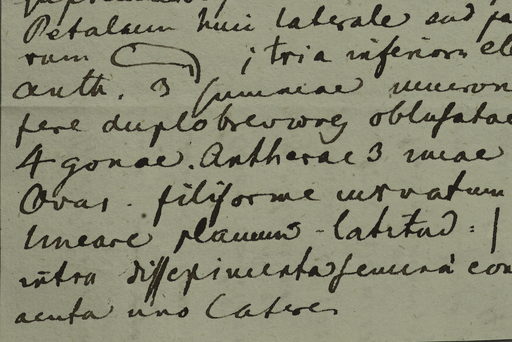 Petalum huic laterale and pa
rum ; tria inferiora el
anth. 3 summae mucron
fere duplo breviores oblusatae
4 gonae. Antherae 3 imae
Ovar. filiforme curvatum
lineare planum - latitud :
intra dissepimenta semina con
acuta uno latere